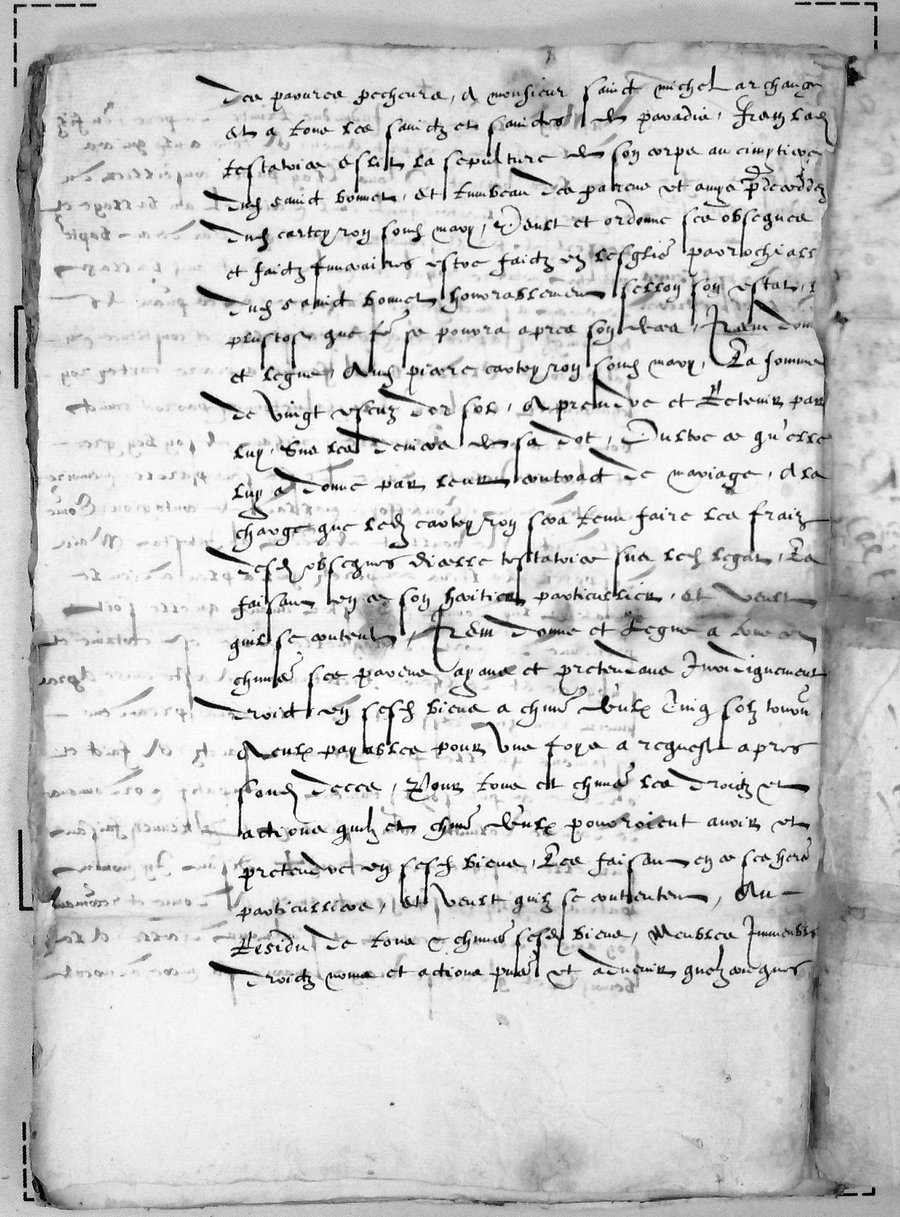 des pauvres pecheurs, a monsieur sainct michel archange
et a tous les sainctz et sainctes de paradis, Item lad
testatrice eslit la sepulture de son corps au cimytiere
dud sainct bonnet, et tumbeau des parens et amys
dud carteyron sond mary, Veult et ordonne ses obseques
et faictz funeraires estre faictz en lesglise parrochiall
dud sainct bonnet honnorablement selon son estat,
plustost que fe se pourra apres son deces, Item don
et legue aud pierre carteyron sond mary, La somme
de vingt escuz dor sol, a prendre et Retenir par
luy sus les deniers de sa dot, Oultre ce qu'elle
luy a donne par leur contract de mariage, a la
charge que led carteyron sera tenu faire les fraiz
desd obseques dicelle testatrice sus led legat, Le
faisant en ce son heritier particullier, et veult
quil se contente, Item donne et legue a tous et
chuns ses parens ayans et pretendans Indivisement
droict en sesd biens a chun deulx Cinq solz
a eulx payables pour une foys a requeste apres
sond deces, Pour tous et chuns les droictz et
actions quilz et chun deulx pourroient avoir et
pretendre en sesd biens, Les faisant en ce ses hers
particulliers, et veult quilz se contentent, Au
Residu de tous et chuns sesd biens, Meubles Immeubles
droictz noms et actions pns et advenir quelzconques